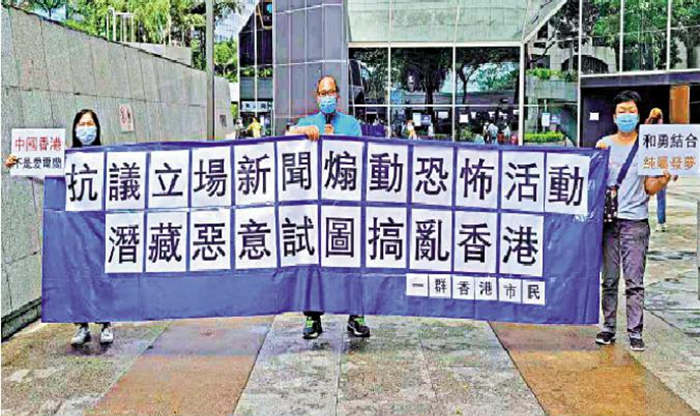 中國香港
不是愛爾蘭
抗議立場新聞煽動恐怖活動
潛藏惡意試圖搞亂香港
一群香港市民
和勇結合
純屬發夢